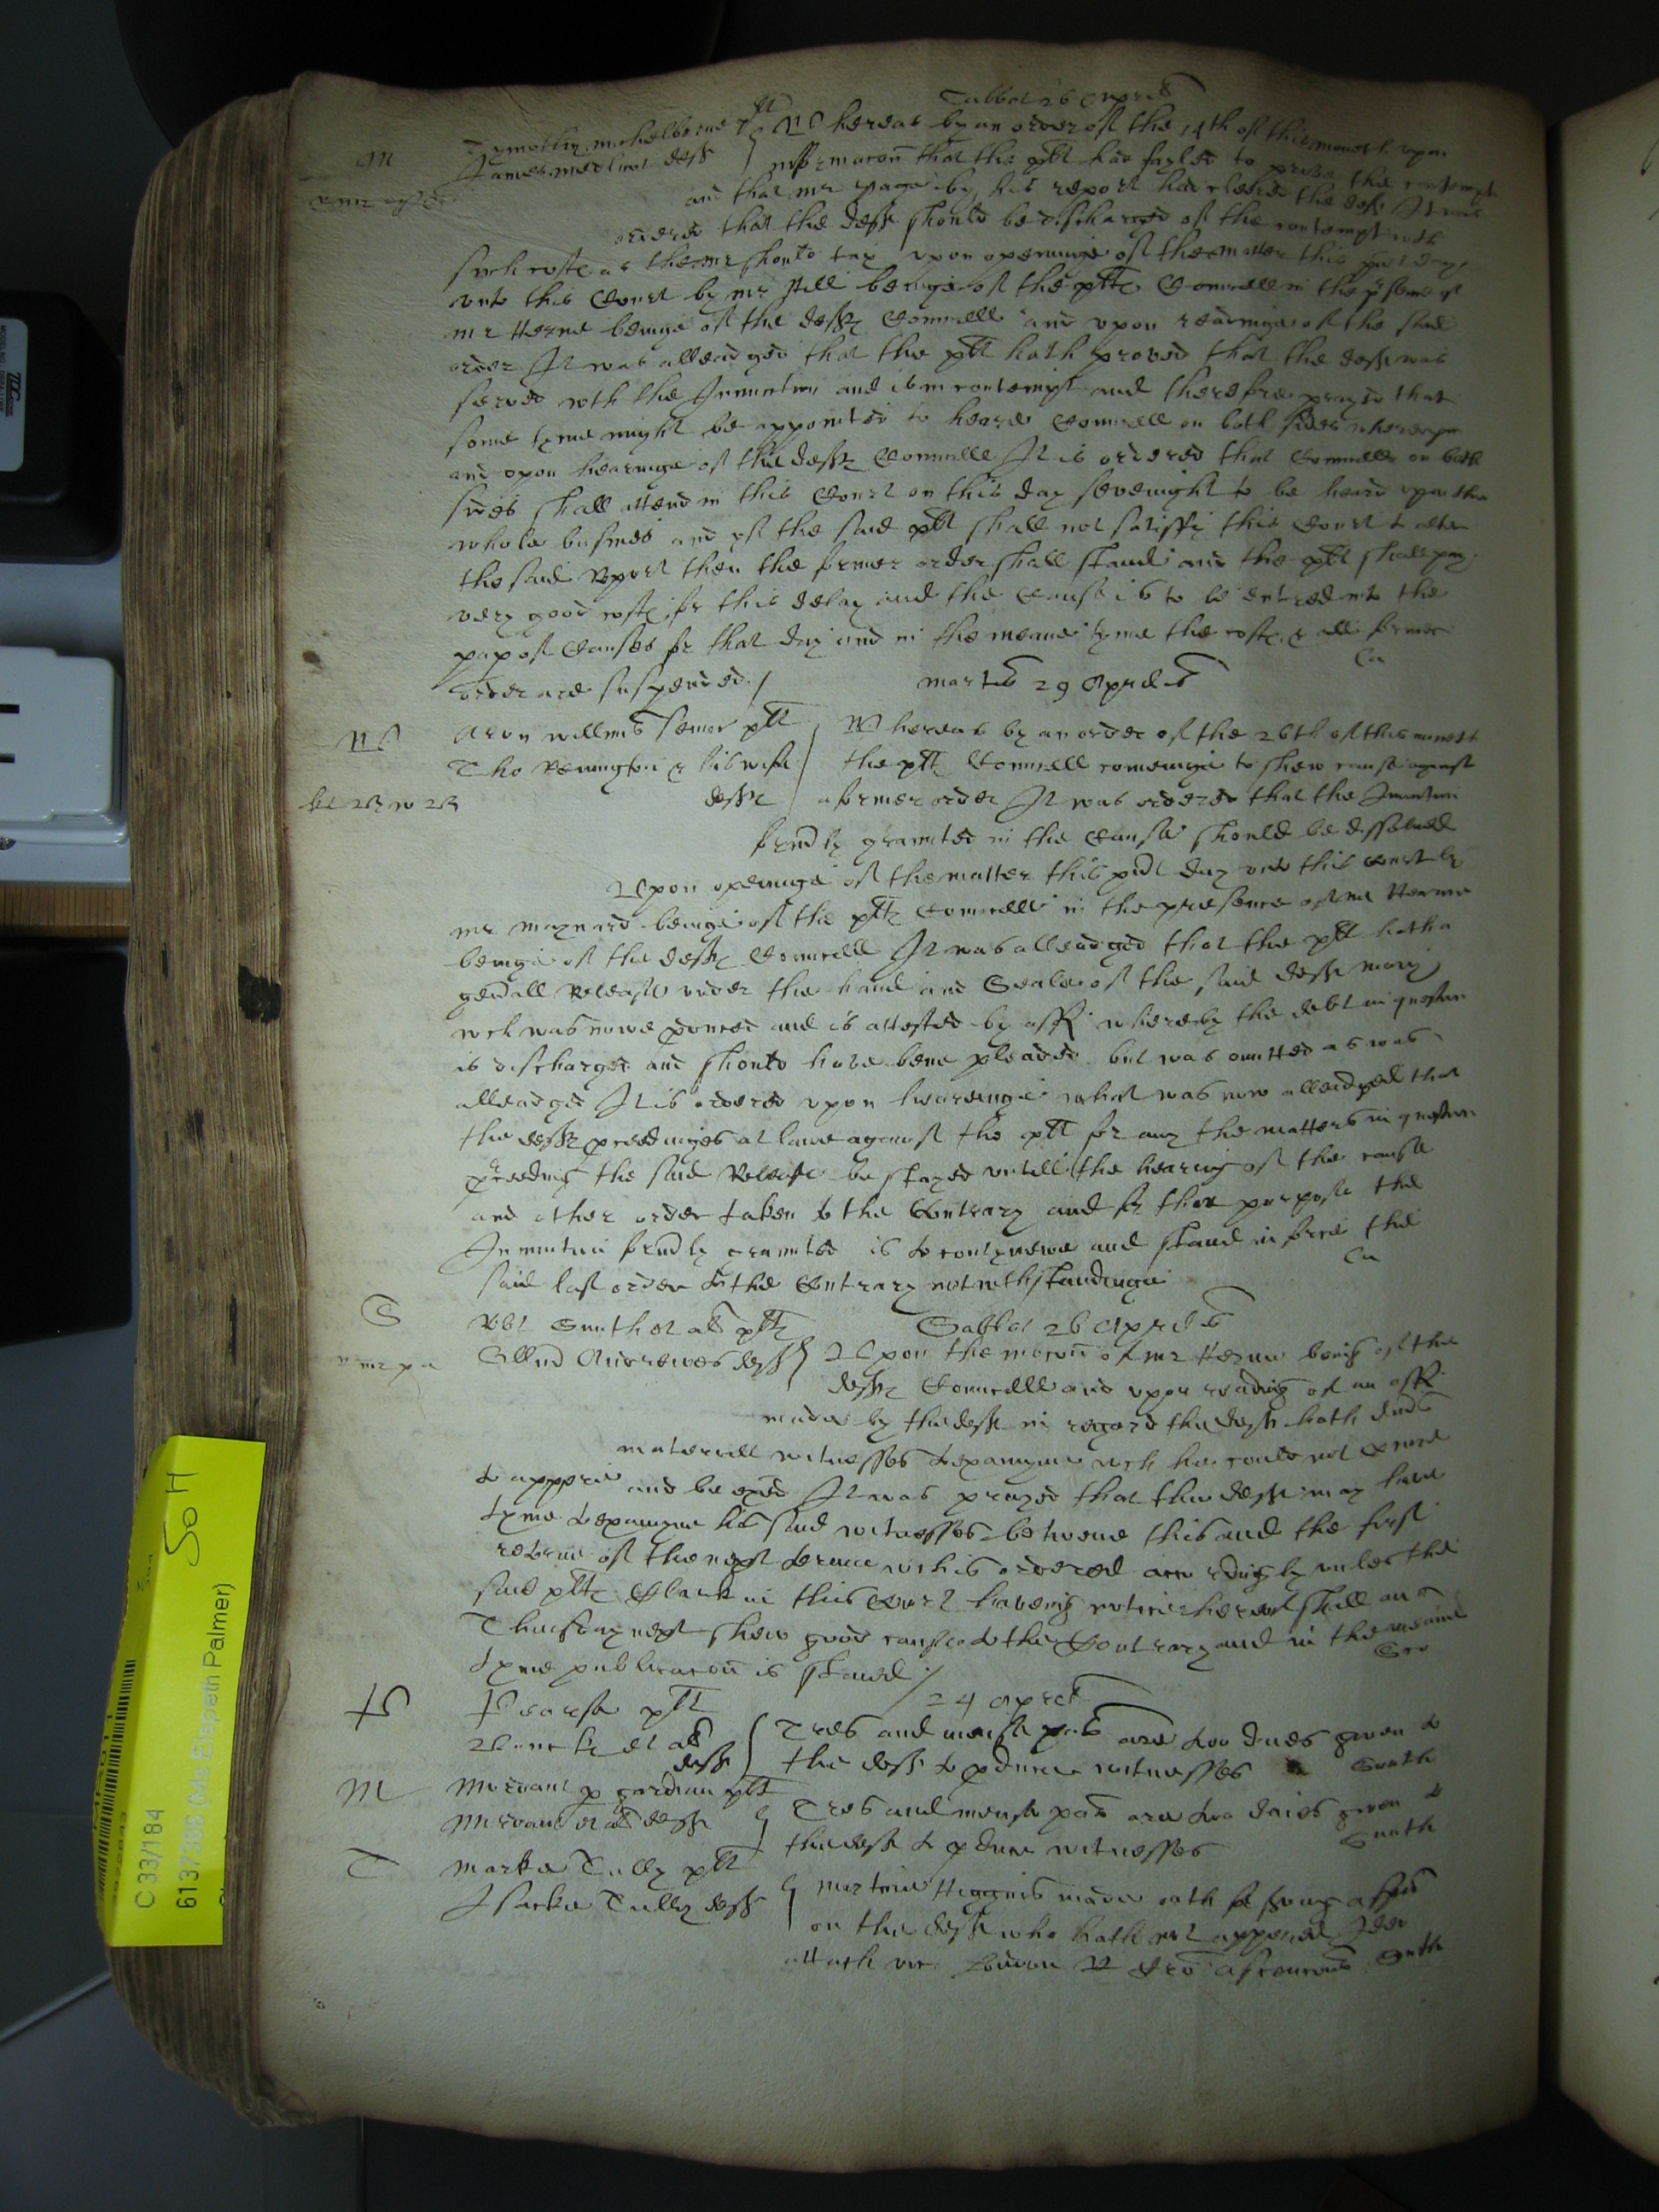 Sabbati 26 Aprilis
M Tymothy Michelborne plt Whereas by an order of the 14th of this moneth upon
James deft informacon that the plt had fayled to prove the contempt
and that mr Page by his report had cleered the deft It was
ordered that the deft should be discharged of the contempt with
such costs as the mr should tax upon openinge of the matter this psent day
unto this Court by mr Hill beinge of the plts Counsell in the psence of
mr Herne beinge of the defts Counsell and upon readinge of the said
order It was alleadged that the plt hath proved that the deft was
served wth the Iniunction and is in contempt and therefore prayed that
some tyme might be appointed to heare Counsell on both sides whereupon
and upon hearinge of the defts Counsell It is ordered that Counsell on both
sides shall attend in this Court on this day sevenight to be heard upon the
whole busines and yf the said plt shall not satisfy this Court to alter
the said Report then the former order shall stand and the plt shall pay
very good costs for this delay and the Cause is to be entred into the
pap of Causes for that day and in the meane tyme the costs & all former
order are suspended /
Ca
Martis 29 Aprilis
W Aron Willms senior plt Whereas by an order of the 26th of this moneth
Tho Penington & his wife the plts Counsell cominge to shew cause against
defts a former order It was ordered that the Iniunction
formly graunted in the Cause should be dissolued
Upon openinge of the matter this psent day unto this Court by
mr Maynard beinge of the plts Counsell in the presence of mr Hearne
beinge of the defts Counsell It was alleadged that the plt hath a
gerall Release under the hand and Seale of the said deft Mary
wch was nowe pduced and is attested by afft whereby the debt in question
is discharged and should have bene pleaded but was omitted as was
alleadged It is ordered upon hearinge what was now alleadged that
the defts pceedinges at lawe against the plt for any the matters in question
pceeding the said Release be stayed untill the hearing of the cause
and other order taken to the Contrary and for that purpose the
Iniunction formly graunted is to contynewe and stand in force the
said last order to the Contrary notwithstandinge
Ca
Sabbati 26 Aprilis
S Robt Smith et al plts Upon the mocon of mr Herne being of the
Edmd Andrewes deft defts Counsell and upon reading of an afft
made by the deft in regard the deft hath divs
materiall witnesses to examyne wch he could not pcure
to appeare and be exed It was prayed that the deft may have
tyme to examyne his said witnesses betweene this and the first
returne of the next terme wch is ordered accordingly unles the
said plts Clark in this Court haveing notice hereof shall on
Thursday next shew good cause to the Contrary and in the meane
tyme publicacon is stayed /
Geo
24 April
P Pearse plt Tres and mense pas are two daies given to
et al deft the deft to pduce witnesses Smith
M Mervant p gardian plt Tres and mense pas are two daies given to
Mervant et al deft the deft to pduce witnesses Smith
T Marke Tully plt Martine Higgins made oath for serving a spa
Isacke Tully deft on the deft who hath not appered Ideo
attach vic London Smith
So H
C 33/184
6137386 (Ms Elspeth Palmer)